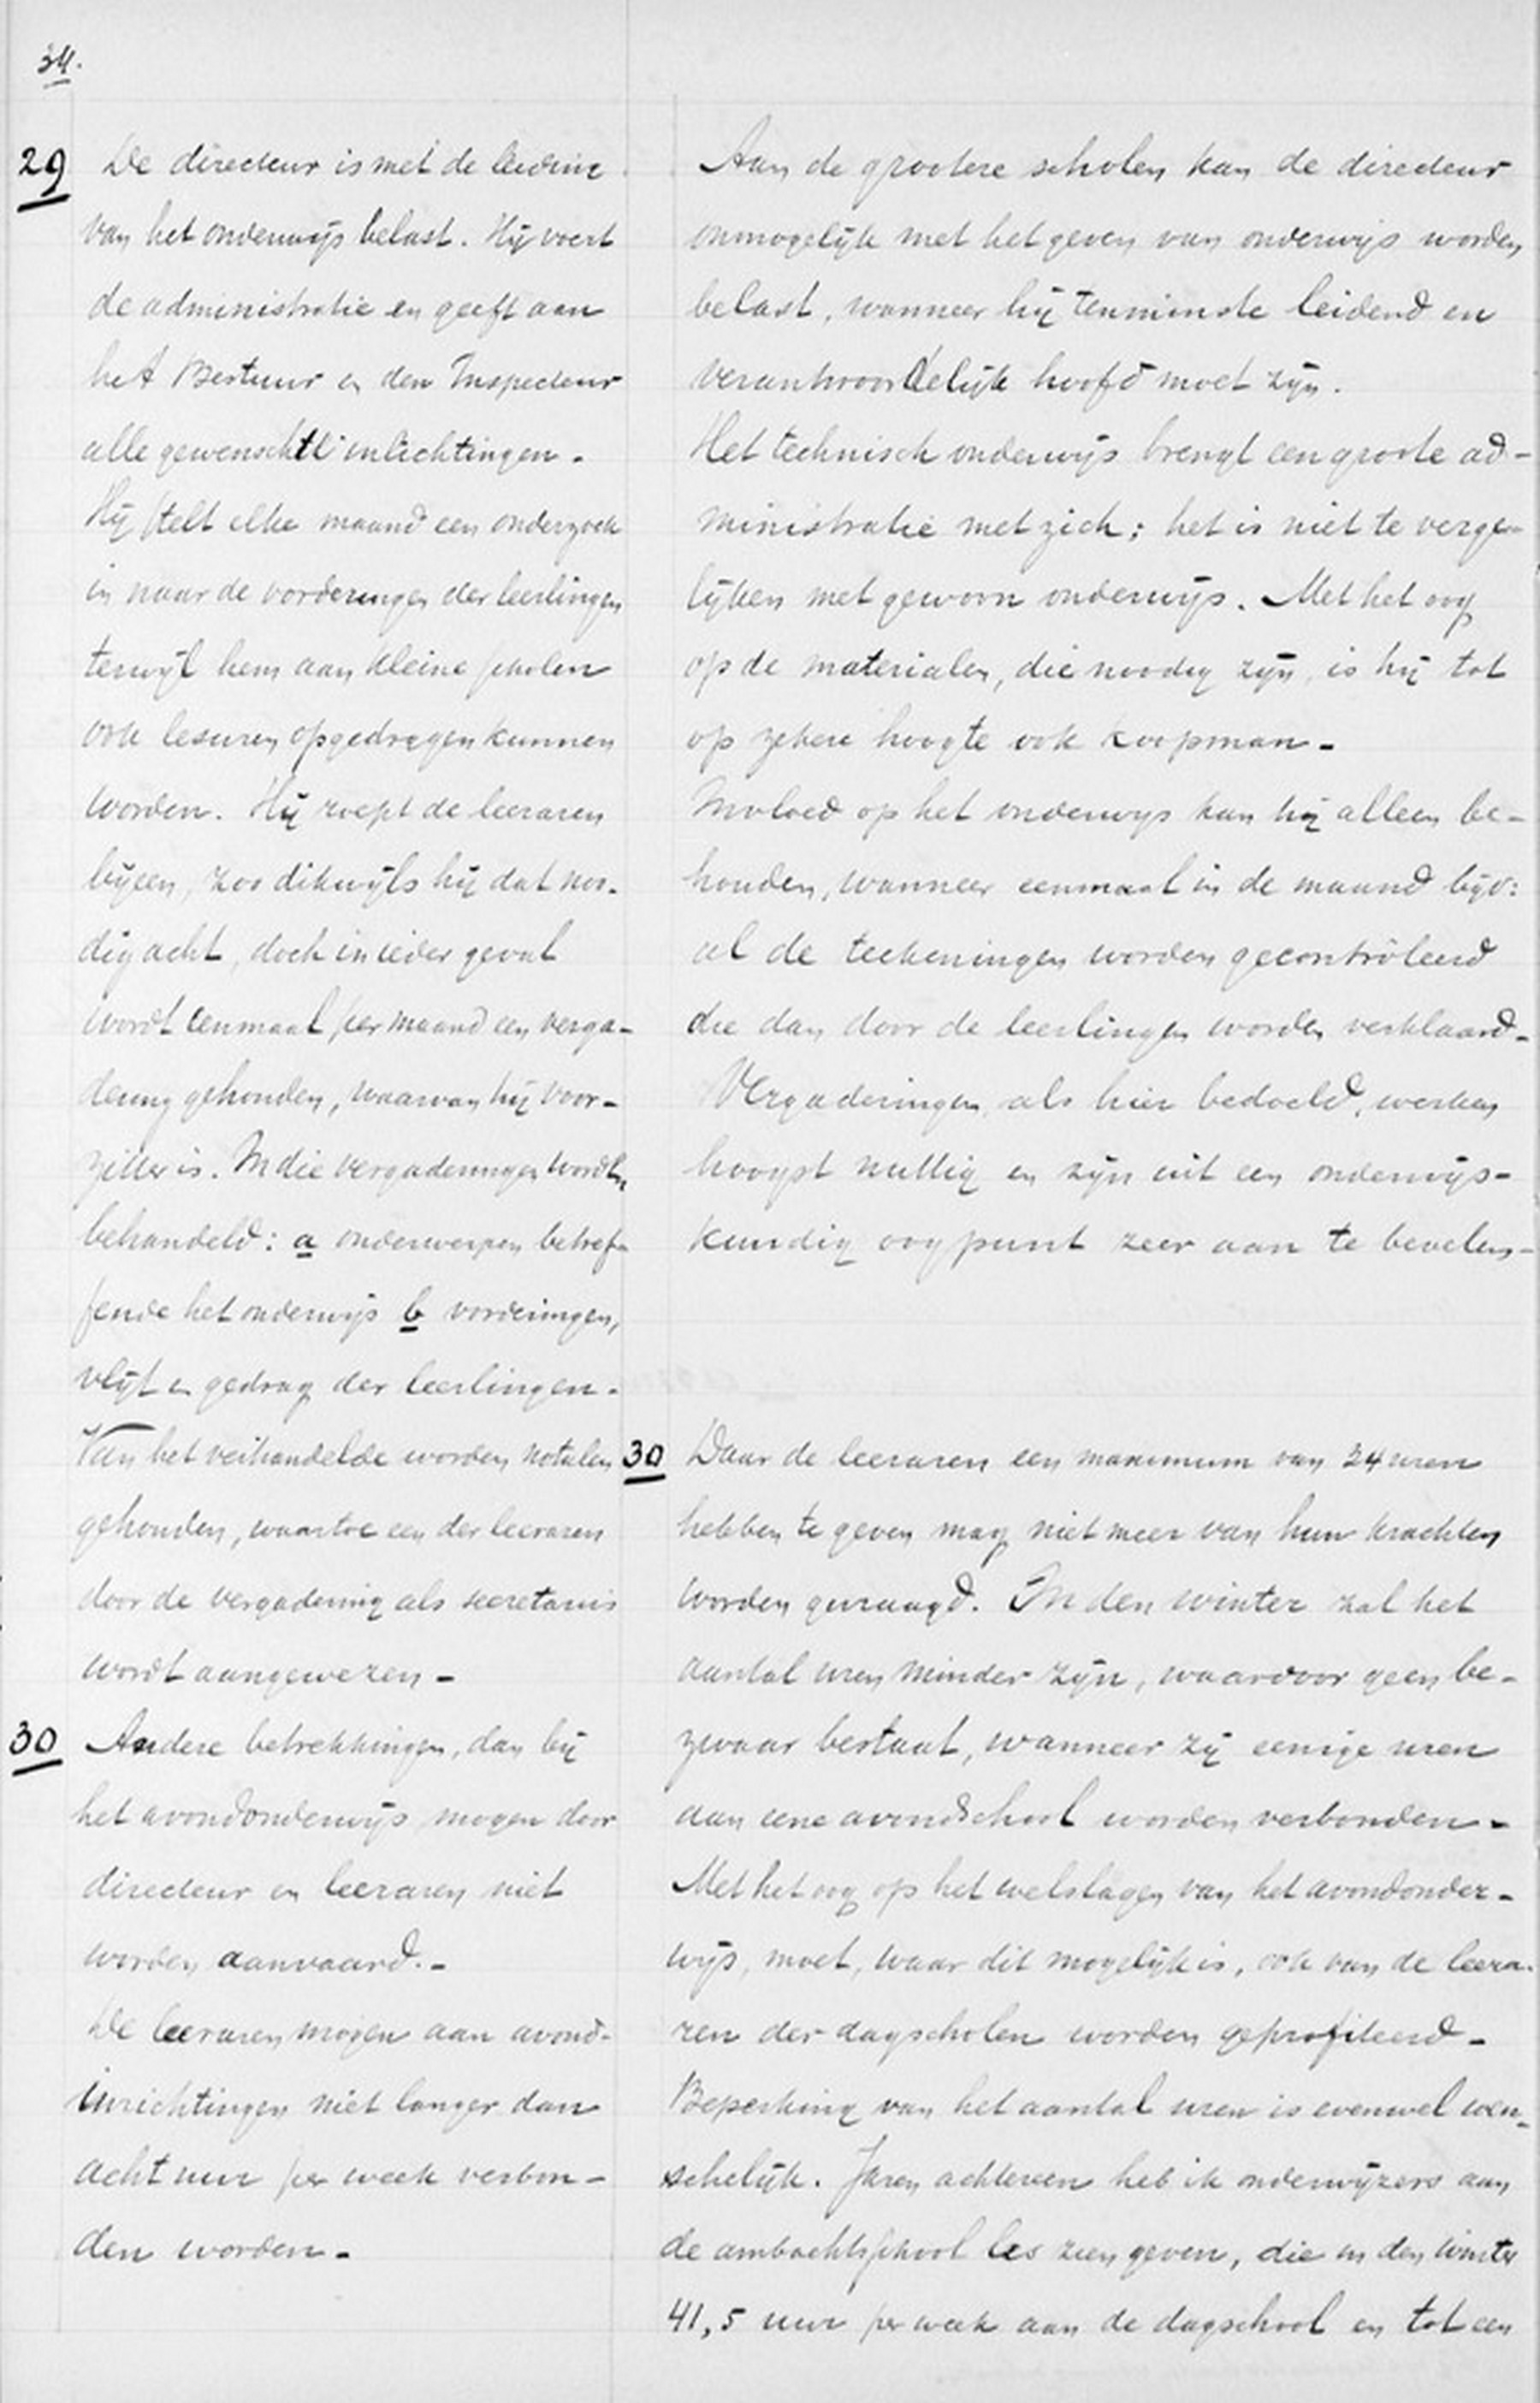 34.
29
De directeur is met de leiding
van het onderwijs belast. Hij voert
de administratie en geeft aan
het Bestuur en den Inspecteur
alle gewenschte inlichtingen.
Hij stelt elke maand een onderzoek
in naar de vorderingen der leerlingen
terwijl hem aan kleine scholen
ook lesuren opgedragen kunnen
worden. Hij roept de leeraren
bijeen, zoo dikwijls hij dat noo-
dig acht, doch in ieder geval
wordt eenmaal per maand een verga-
dering gehouden, waarvan hij voor-
zitter is. In die vergaderingen worden
behandeld: a onderwerpen betref-
fende het onderwijs b vorderingen,
vlijt en gedrag der leerlingen.
Van het verhandelde worden notulen
gehouden, waartoe een der leeraren
door de vergadering als secretaris
wordt aangewezen -
30
Andere betrekkingen, dan bij
het avondonderwijs mogen door
directeur en leeraren niet
worden aanvaard. -
De leeraren mogen aan avond-
inrichtingen niet langer dan
acht uur per week verbon-
den worden -
Aan de grootere scholen kan de directeur
onmogelijk met het geven van onderwijs worden
belast, wanneer hij tenminste leidend en
verantwoordelijk hoofd moet zijn.
Het technisch onderwijs brengt een groote ad-
ministratie met zich; het is niet te verge-
lijken met gewoon onderwijs. Met het oog
op de materialen, die noodig zijn, is hij tot
op zekere hoogte ook koopman -
Invloed op het onderwijs kan hij alleen be-
houden, wanneer eenmaal in de maand bijv:
al de teekeningen worden gecontrôleerd
die dan door de leerlingen worden verklaard -
Vergaderingen, als hier bedoeld, werken
hoogst nuttig en zijn uit een onderwijs-
kundig oogpunt zeer aan te bevelen -
30
Daar de leeraren een maximum van 34 uren
hebben te geven mag niet meer van hun krachten
worden gevraagd. In den winter zal het
aantal uren minder zijn, waardoor geen be-
zwaar bestaat, wanneer zij eenige uren
aan eene avondschool worden verbonden -
Met het oog op het welslagen van het avondonder-
wijs, moet, waar dit mogelijk is, ook van de leera-
ren der dagscholen worden geprofiteerd -
Beperking van het aantal uren is evenwel wen-
schelijk. Jaren achtereen heb ik onderwijzers aan
de ambachtsschool les zien geven, die in den winter
41,5 uur per week aan de dagschool en tot een